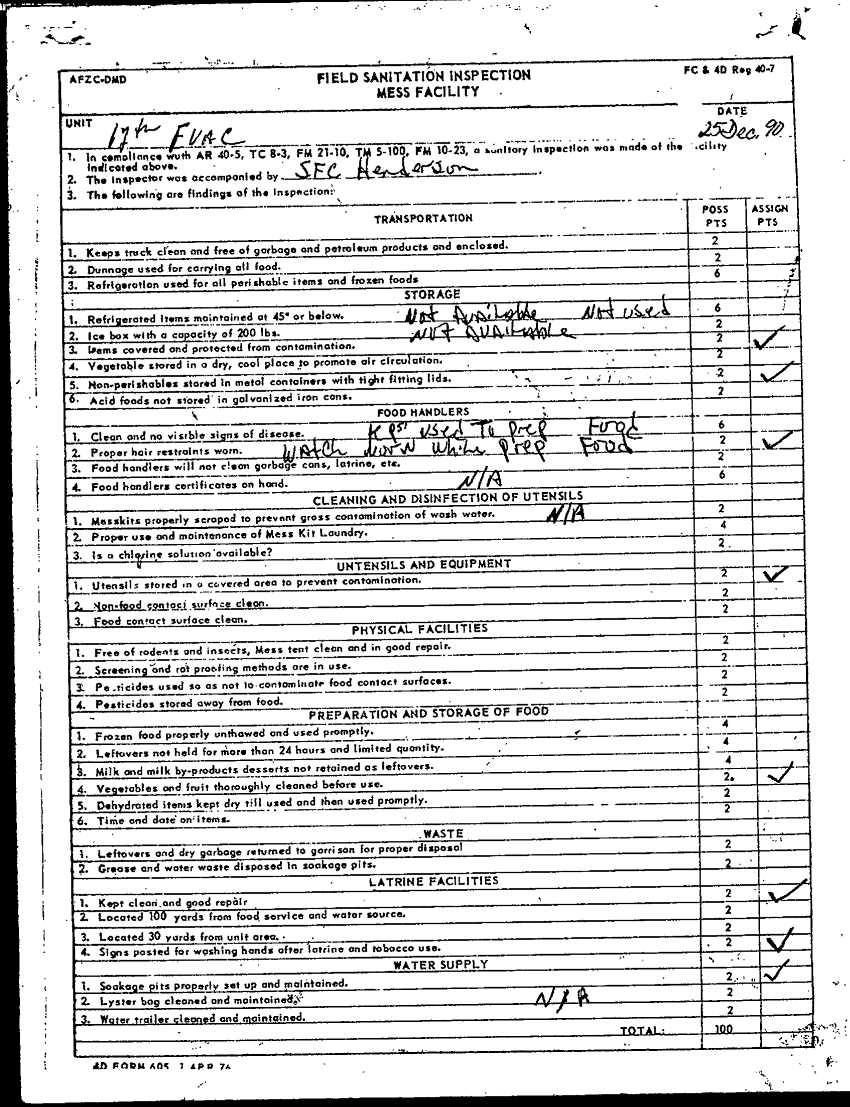 AFZC-DMD
FIELD SANITATION INSPECTION
MESS FACILITY
FC & 4D Reg 40-7
DATE
UNIT 17th EVAC 25 Dec. 90
1. In compliance wuth AR 40-5, TC 8-3, FM 21-10, TM 5-100, FM 10-23, a sanitary inspection was made of the cility
indicated above.
2. The inspector was accompanied by SFC Henderson
3. The following are findings of the inspection:
TRANSPORTATION POSS PTS ASSIGN PTS
1. Keeps truck clean and free of garbage and petroleum products and enclosed. 2
2. Dunnage used for carrying all food. 2
3. Refrigeration used for all perishable items and frozen foods 6
STORAGE
1. Refrigerated items maintained at 45° or below. Not Available Not used 6
2. Ice box with a capacity of 200 lbs. Not Available 2
3. Items covered and protected from contamination. 2 ✓
4. Vegetable stored in a dry, cool place to promote air circulation.
5. Non-perishables stored in metal containers with tight fitting lids. 2 ✓
6. Acid foods not stored in galvanized iron cans. 2
FOOD HANDLERS
1. Clean and no visible signs of disease. KPs' used To prep Food 6
2. Proper hair restraints worn. WATCH worn while prep Food 2 ✓
3. Food handlers will not clean garbage cans, latrine, etc. 2
4. Food handlers certificates on hand. N/A 6
CLEANING AND DISINFECTION OF UTENSILS
1. Messkits properly scraped to prevent gross contamination of wash water. N/A 2
2. Proper use and maintenance of Mess Kit Laundry. 4
3. Is a chlorine solution available? 2
UNTENSILS AND EQUIPMENT
1. Utensils stored in a covered area to prevent contamination. 2 ✓
2. Non-food contact surface clean. 2
3. Food contact surface clean. 2
PHYSICAL FACILITIES
1. Free of rodents and insects, Mess tent clean and in good repair. 2
2. Screening and rat proofing methods are in use. 2
3. Pesticides used so as not to contaminate food contact surfaces. 2
4. Pesticides stored away from food. 2
PREPARATION AND STORAGE OF FOOD
1. Frozen food properly unthawed and used promptly. 4
2. Leftovers not held for more than 24 hours and limited quantity. 4
3. Milk and milk by-products desserts not retained as leftovers. 4
4. Vegetables and fruit thoroughly cleaned before use. 2. ✓
5. Dehydrated items kept dry till used and then used promptly. 2
6. Time and date on items. 2
WASTE
1. Leftovers and dry garbage returned to garrison for proper disposal 2
2. Grease and water waste disposed in soakage pits. 2
LATRINE FACILITIES
1. Kept clean and good repair 2 ✓
2. Located 100 yards from food service and water source. 2
3. Located 30 yards from unit area. 2
4. Signs posted for washing hands after latrine and tobacco use. 2 ✓
WATER SUPPLY
1. Soakage pits properly set up and maintained. 2 ✓
2. Lyster bag cleaned and maintained. N/A 2
3. Water trailer cleaned and maintained. 2
TOTAL: 100
4D FORM 605 1 APR 76